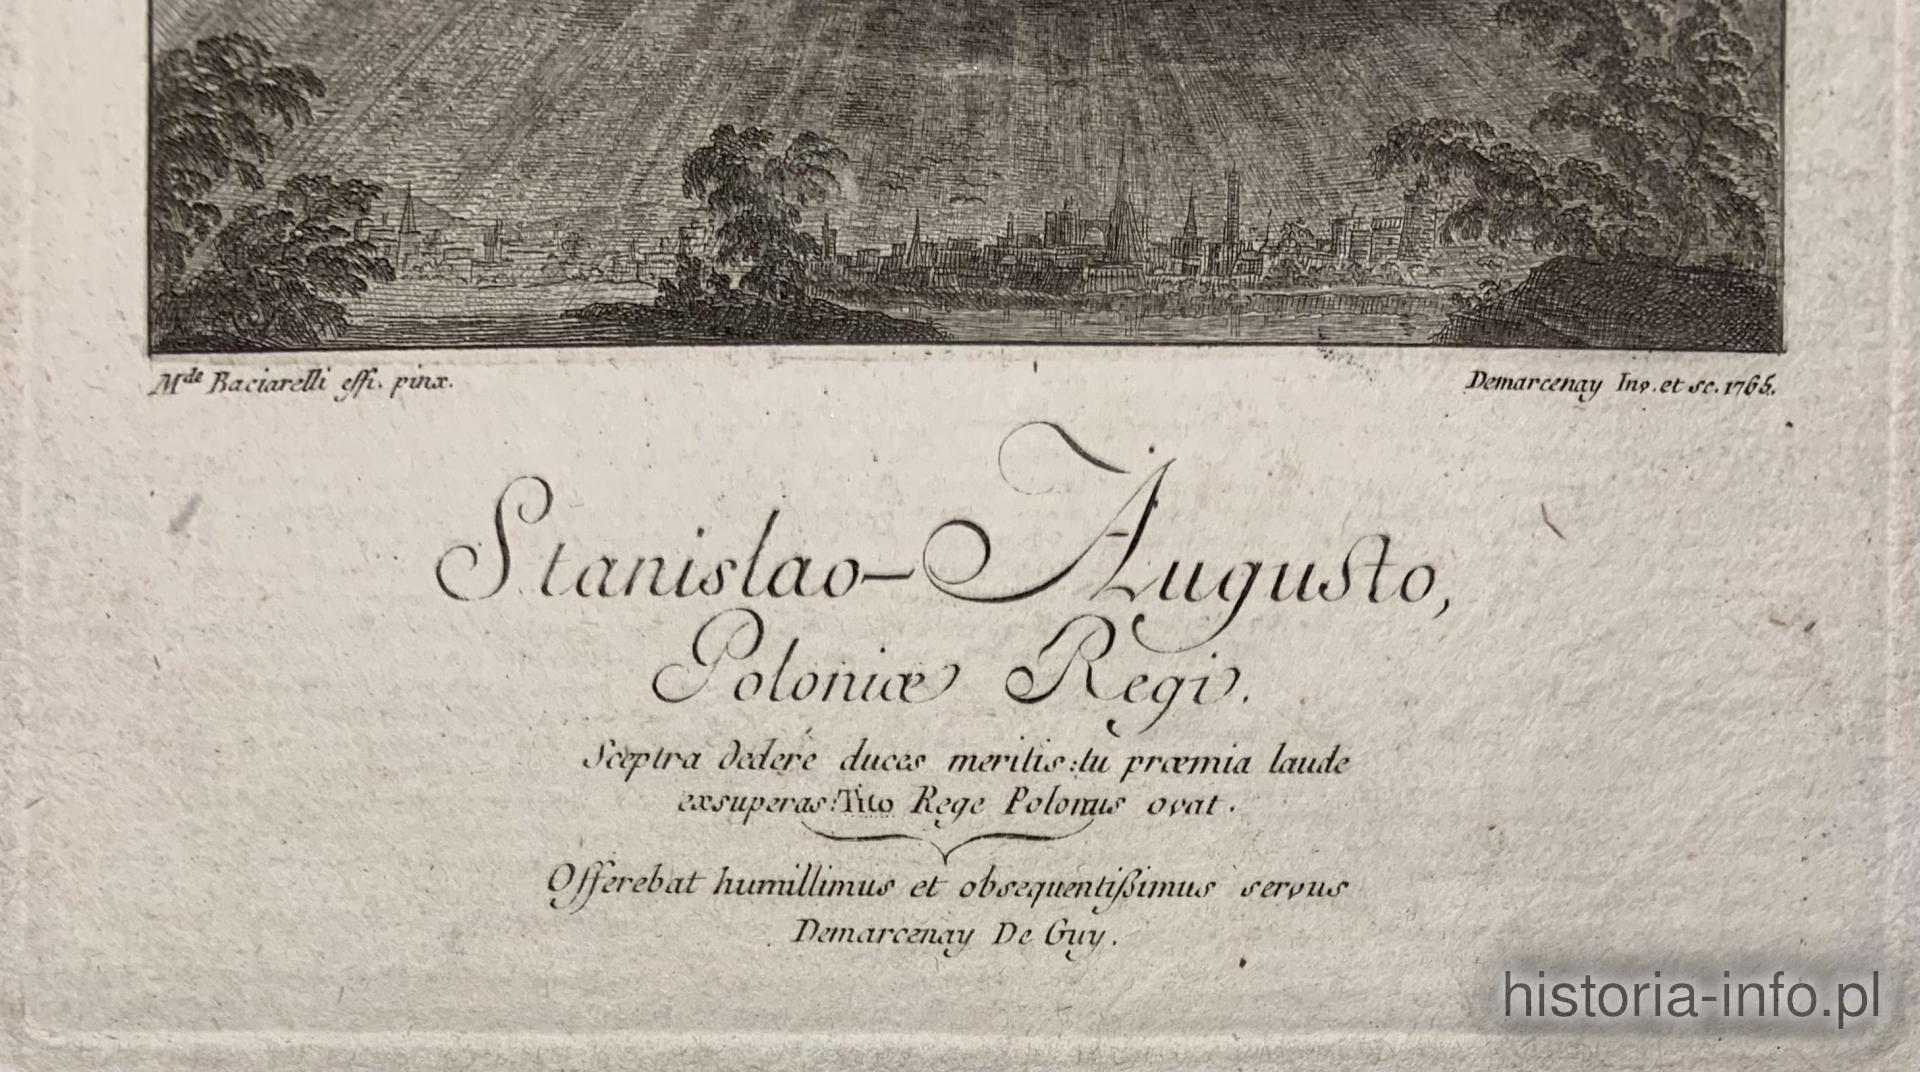 Mde Baciarelli effi. pinx.
Demarcenay Inv. et sc. 1765.
Stanislao-Augusto,
Poloniæ Regi.
Sceptra dedere duces meritis: tu præmia laude
exsuperas: Tito Rege Polonus ovat.
Offerebat humillimus et obsequentißimus servus
Demarcenay De Guy.
historia-info.pl